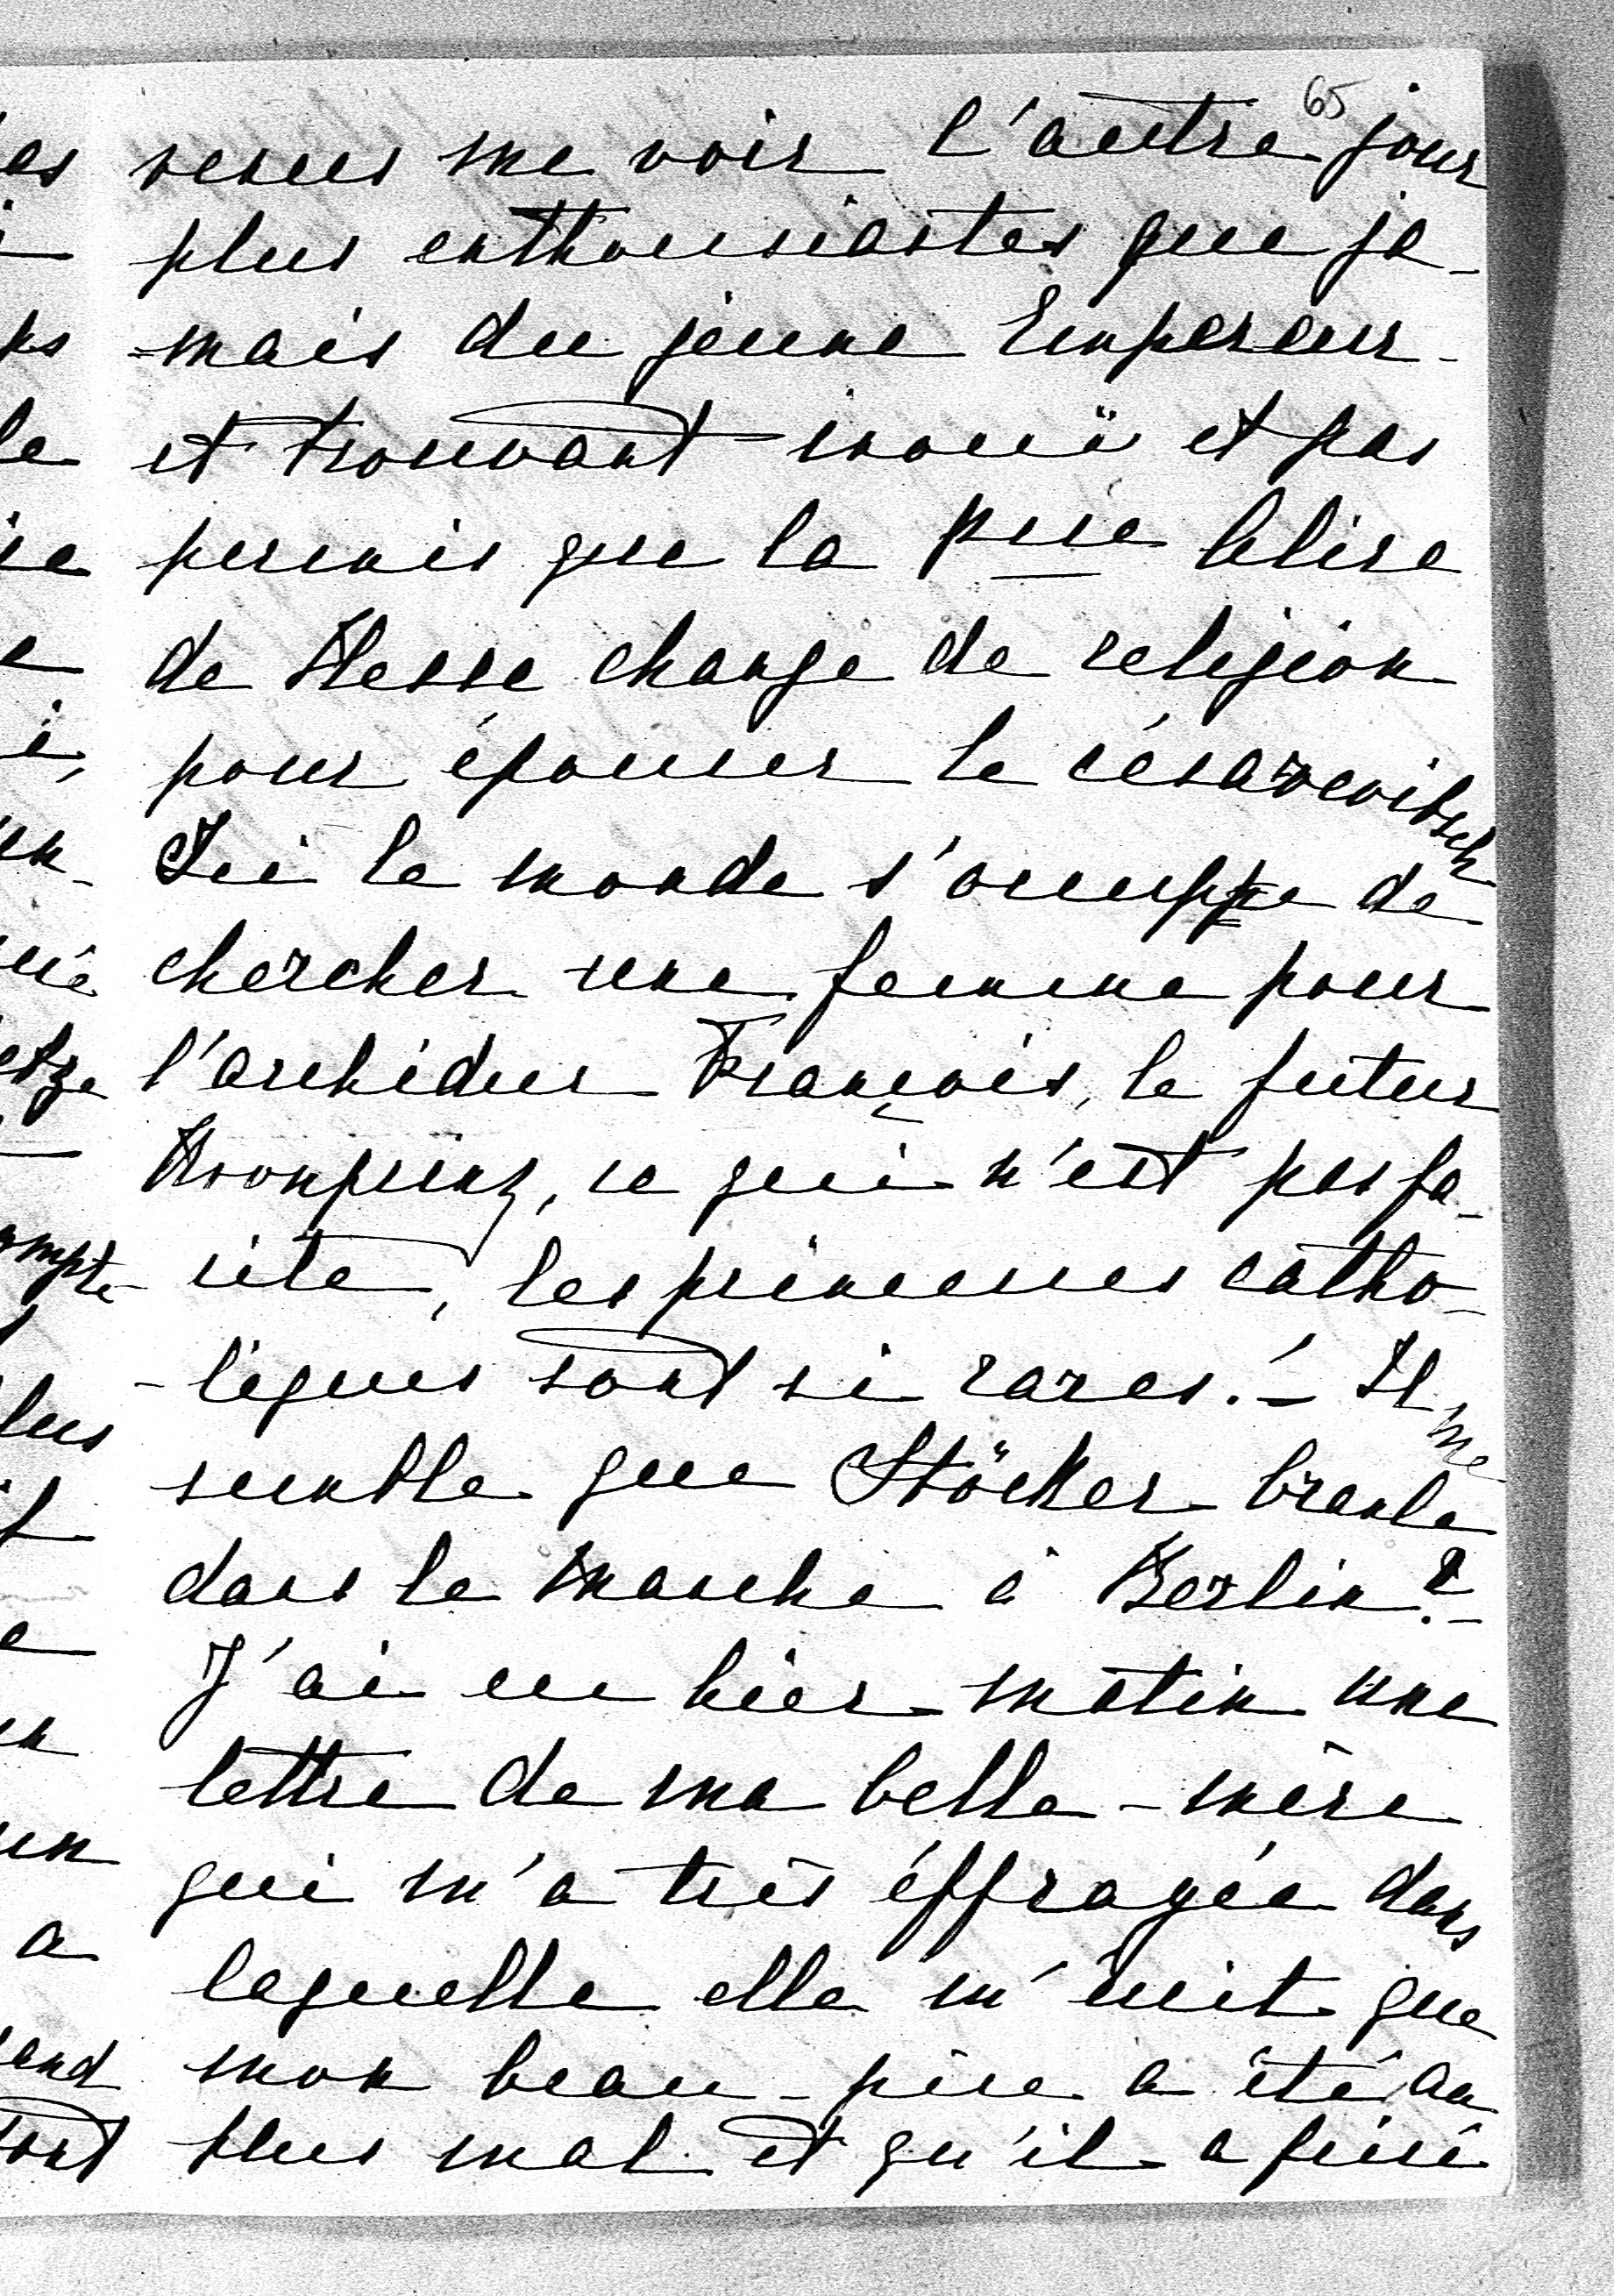 65
venus me voir l'autre jour
plus enthousiastes que ja-
-mais du jeune Empereur -
et trouvant inouï et pas
permis que la Psse Alice
de Hesse change de religion
pour épouser le césarewitsch
Ici le monde s'occuppe de
chercher une femme pour
l'archiduc François, le futur
Kronprinz, ce qui n'est pas fa-
cile, les princesses catho-
-liques sont si rares! - Il me
semble que Stöcker branle
dans le manche à Berlin? -
J'ai eu hier matin une
lettre de ma belle-mère
qui m'a très éffrayée dans
laquelle elle m'écrit que
mon beau-père a été au
plus mal et qu'il a